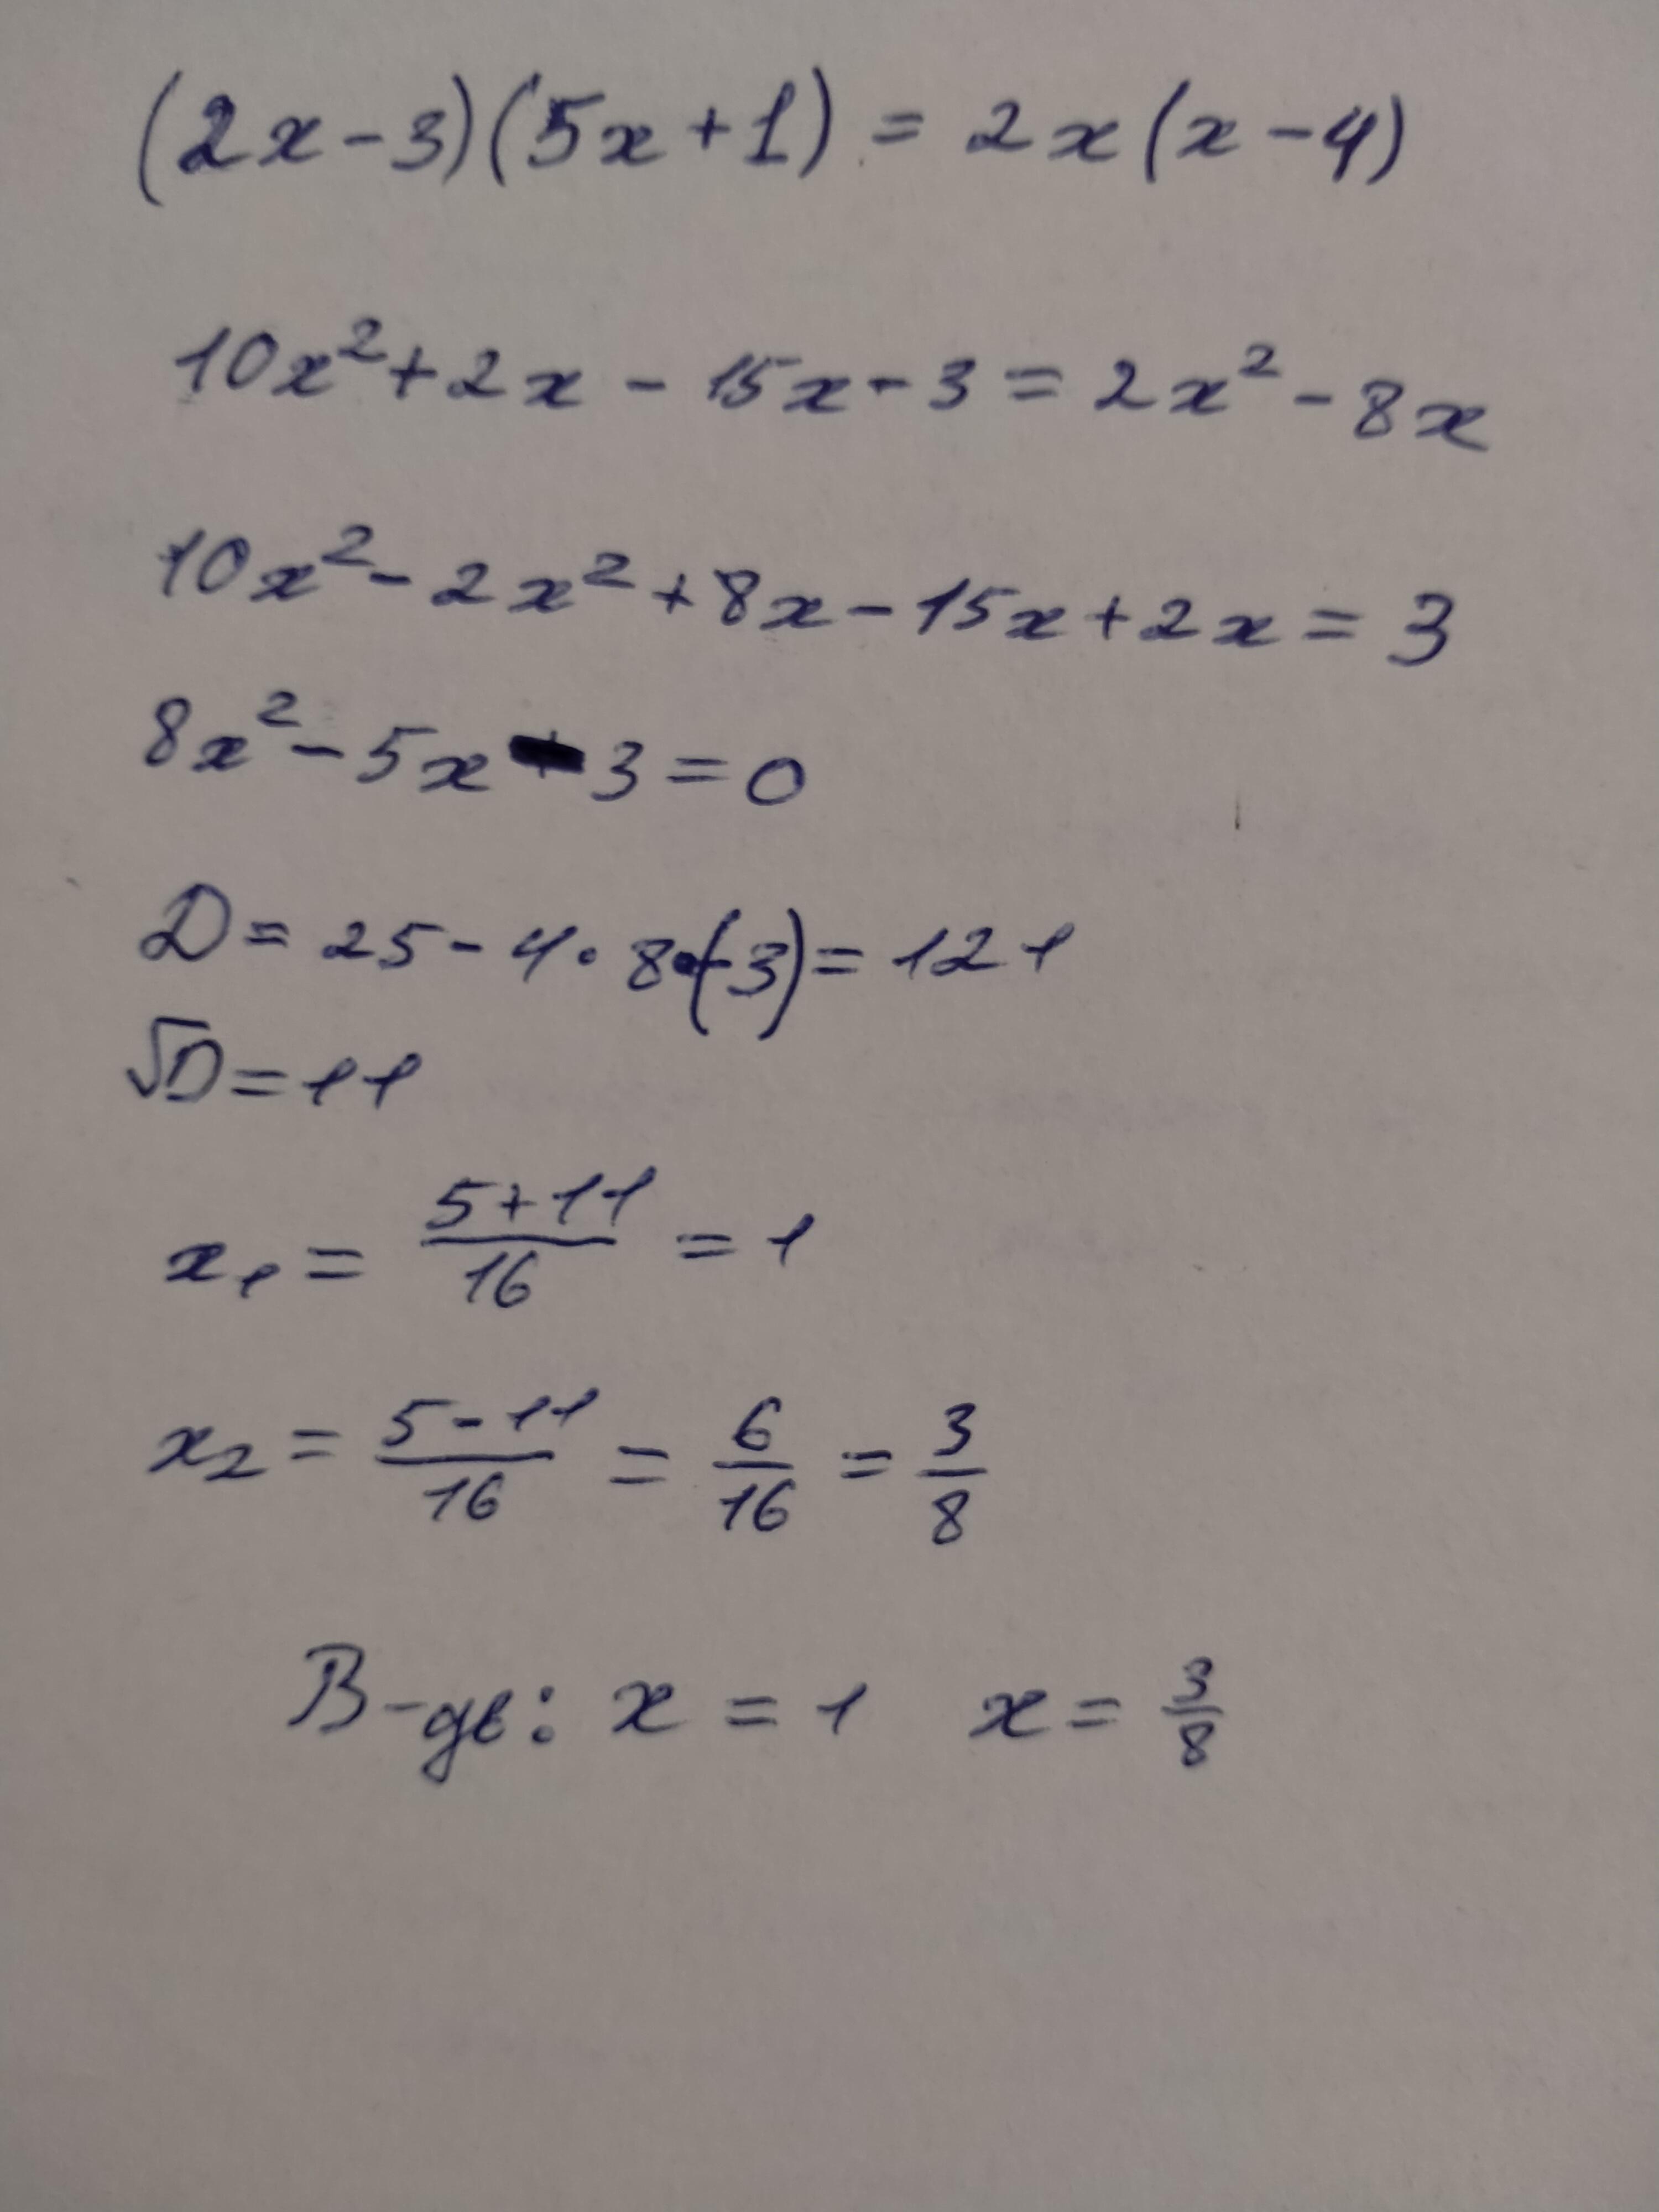 (2x-3)(5x+1) = 2x(x-4)
10x²+2x-15x-3=2x²-8x
10x²-2x²+8x-15x+2x=3
8x²-5x-3=0
D=25-4·8·(-3)=121
√D=11
x₁=(5+11)/16=1
x₂=(5-11)/16=6/16=3/8
В-дь: x=1 x=3/8